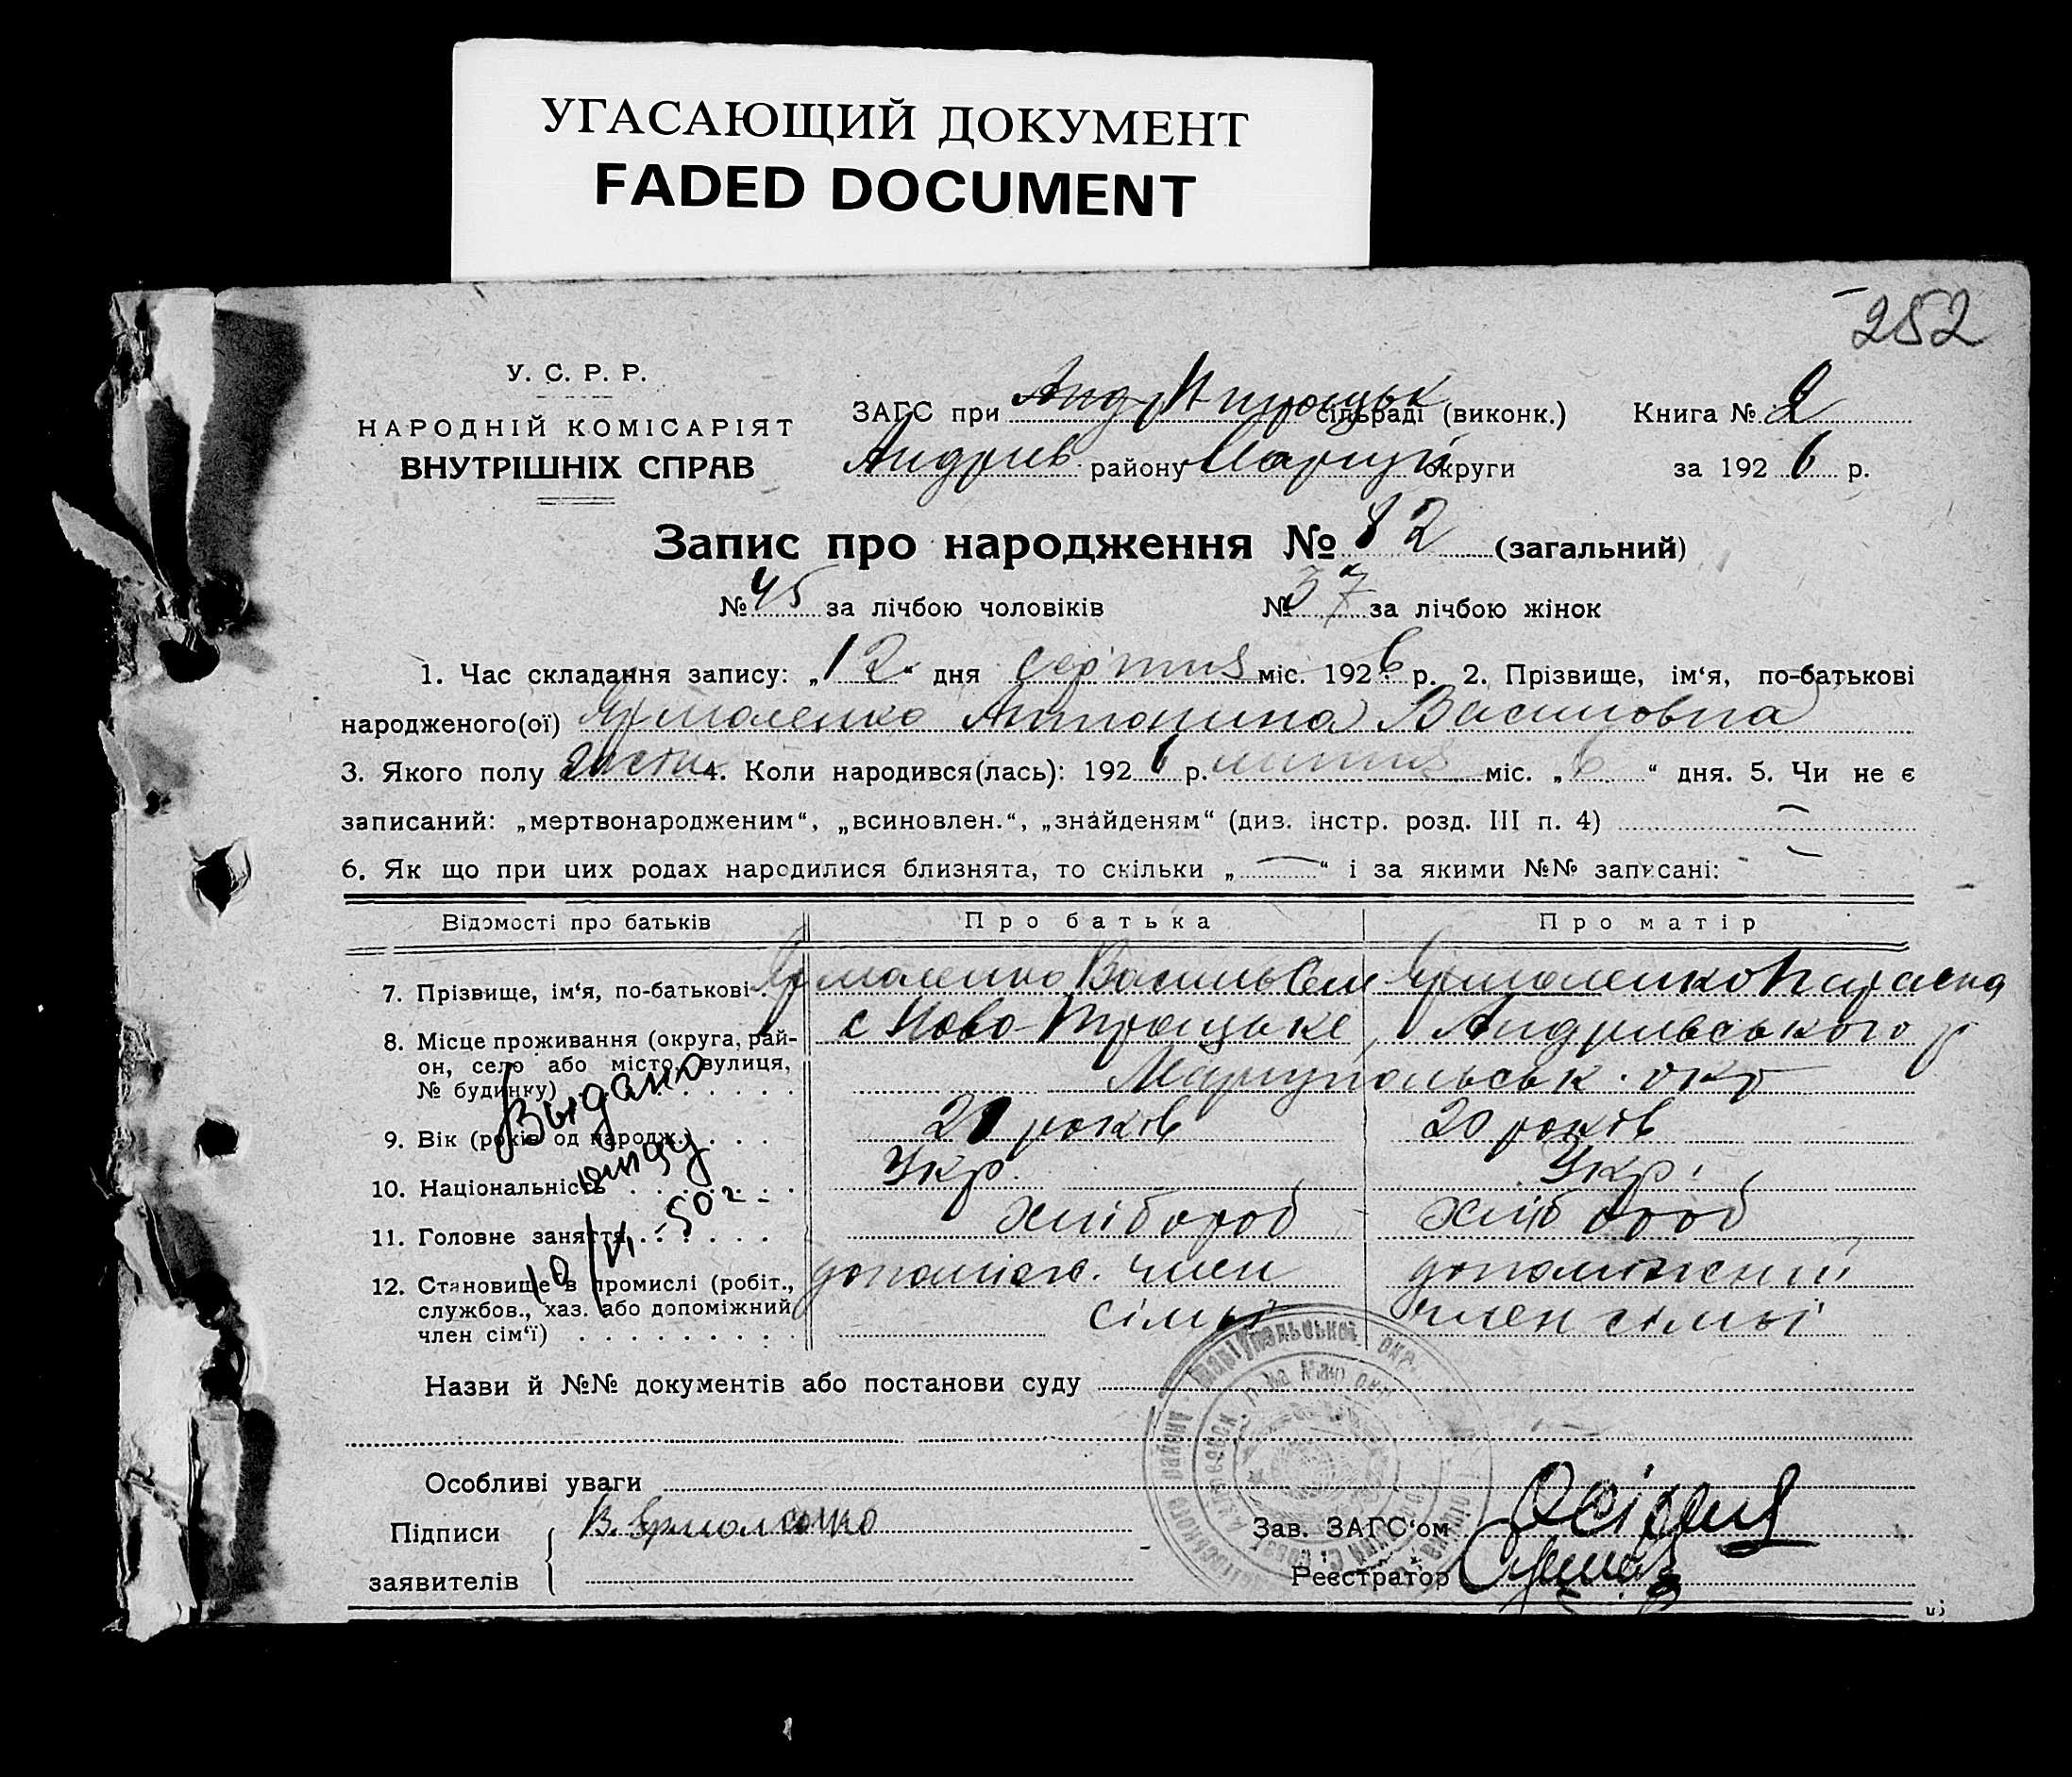 УГАСАЮЩИЙ ДОКУМЕНТ
FADED DOCUMENT
252
У. С. Р. Р.
НАРОДНІЙ КОМІСАРІЯТ
ВНУТРІШНІХ СПРАВ
ЗАГС при сільраді (виконк.) Книга № 2
Андрієв району Маріуп округи за 1926 р.
Запис про народження № 82 (загальний)
№ 45 за лічбою чоловіків № 37 за лічбою жінок
1. Час складання запису: „12“ дня серпня міс. 1926 р. 2. Прізвище, ім‘я, по-батькові
народженого(ої) Ярмоленко Антонина Василовна
3. Якого полу 4. Коли народився(лась): 1926 р. липня міс. „6“ дня. 5. Чи не є
записаний: „мертвонародженим“, „всиновлен.“, „знайденям“ (див. інстр. розд. III п. 4) —
6. Як що при цих родах народилися близнята, то скільки „—“ і за якими №№ записані: —
Відомості про батьків Про батька Про матір
7. Прізвище, ім‘я, по-батькові . Ярмоленко Василь Сем Ярмоленко Параска
8. Місце проживання (округа, рай-
он, село або місто, вулиця,
№ будинку) . . . . . .
с Ново Троцьке, Андриевського р
Маріупольськ. окр
9. Вік (років од народж.) . . . 21 років 20 років
10. Національність . . . . . . Укр. Укр.
11. Головне заняття . . . . . . хлібороб хлібороб
12. Становище в промислі (робіт.,
службов., хаз. або допоміжний
член сім‘ї) . . . . . . . . .
допоміж. член сімьї
допоміжний член сімьї
Выдано
10/VI-50 г.
Назви й №№ документів або постанови суду
Особливі уваги
Підписи
заявителів
В. Ярмоленко
Зав. ЗАГС‘ом
Реєстратор